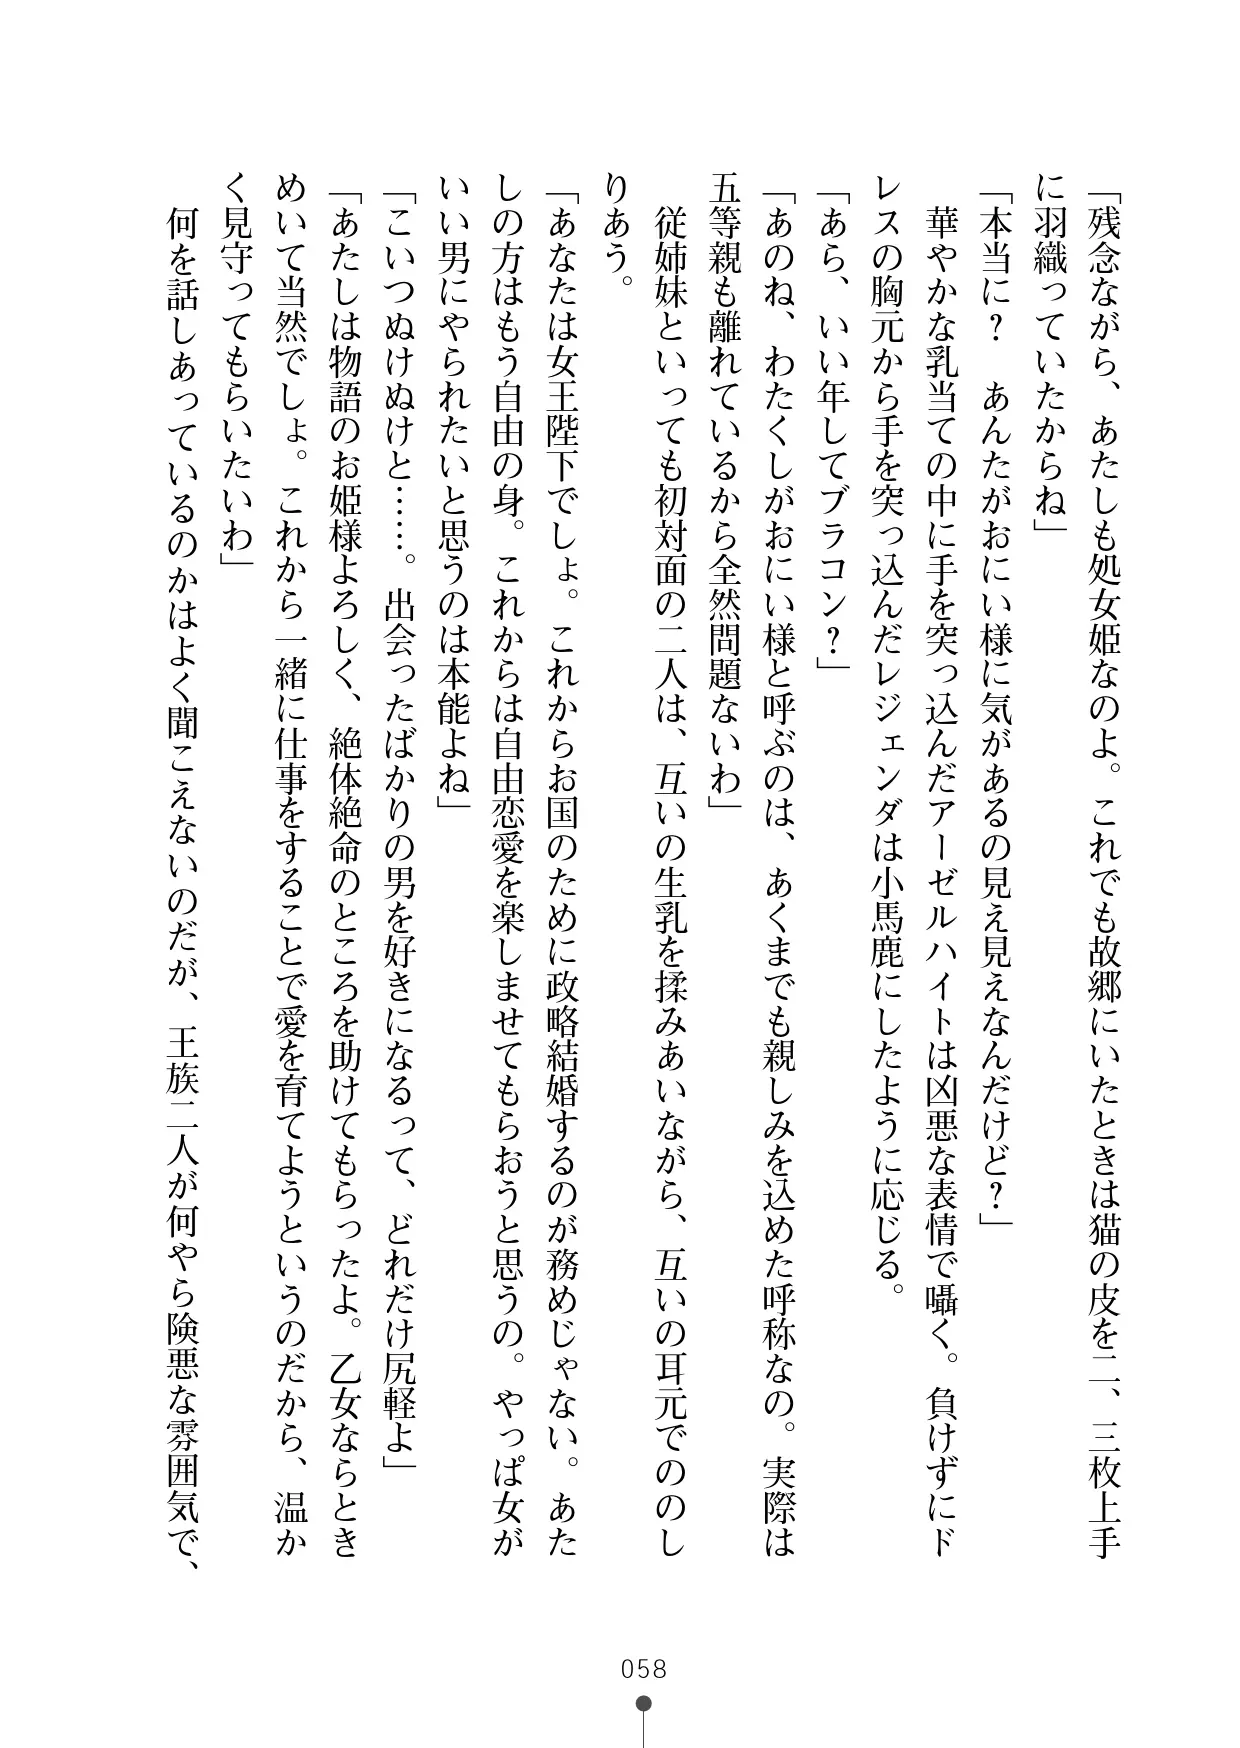 「残念ながら、あたしも処女姫なのよ。これでも故郷にいたときは猫の皮を二、三枚上手
に羽織っていたからね」
「本当に？　あんたがおにい様に気があるの見え見えなんだけど？」
　華やかな乳当ての中に手を突っ込んだアーゼルハイトは凶悪な表情で囁く。負けずにド
レスの胸元から手を突っ込んだレジェンダは小馬鹿にしたように応じる。
「あら、いい年してブラコン？」
「あのね、わたくしがおにい様と呼ぶのは、あくまでも親しみを込めた呼称なの。実際は
五等親も離れているから全然問題ないわ」
　従姉妹といっても初対面の二人は、互いの生乳を揉みあいながら、互いの耳元でののし
りあう。
「あなたは女王陛下でしょ。これからお国のために政略結婚するのが務めじゃない。あた
しの方はもう自由の身。これからは自由恋愛を楽しませてもらおうと思うの。やっぱ女が
いい男にやられたいと思うのは本能よね」
「こいつぬけぬけと……。出会ったばかりの男を好きになるって、どれだけ尻軽よ」
「あたしは物語のお姫様よろしく、絶体絶命のところを助けてもらったよ。乙女ならとき
めいて当然でしょ。これから一緒に仕事をすることで愛を育てようというのだから、温か
く見守ってもらいたいわ」
　何を話しあっているのかはよく聞こえないのだが、王族二人が何やら険悪な雰囲気で、
058